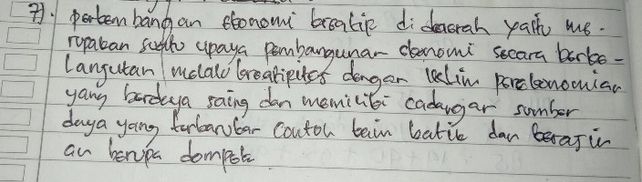 7). perkembangan ekonomi kreatip di daerah yaitu me-
rupakan suatu upaya pembangunan ekonomi secara berke-
langutan melalui kreatipitas dengan iklim perekonomian
yang berdaya saing dan memiliki cadangan sumber
daya yang terbarukan contoh kain batik dan kerajin
an berupa dompet